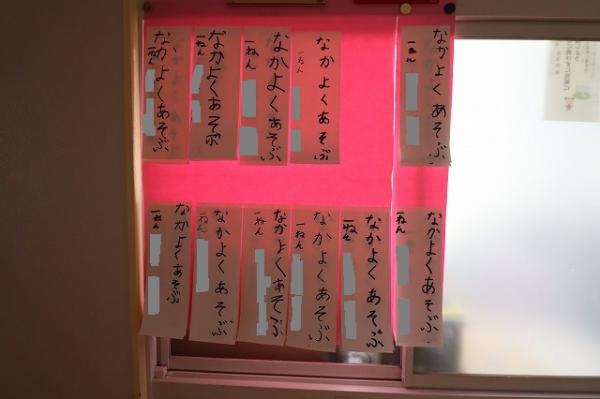 なかよくあそぶ
一ねん
なかよくあそぶ
一ねん
なかよくあそぶ
一ねん
なかよくあそぶ
一ねん
なかよくあそぶ
一ねん
なかよくあそぶ
一ねん
なかよくあそぶ
一ねん
なかよくあそぶ
一ねん
なかよくあそぶ
一ねん
なかよくあそぶ
一ねん
なかよくあそぶ
一ねん